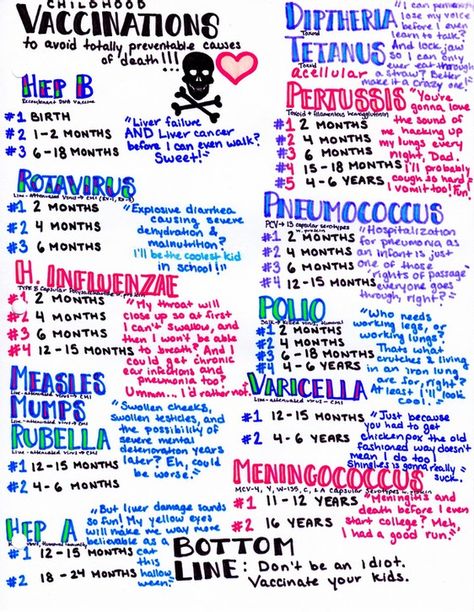 CHILDHOOD
VACCINATIONS
to avoid totally preventable causes
of death!!!
HEP B
Recombinant DNA Vaccine
#1 BIRTH
#2 1-2 MONTHS
#3 6-18 MONTHS
"Liver failure
AND Liver cancer
before I can even walk?
Sweet!"
ROTAVIRUS
#1 2 MONTHS
#2 4 MONTHS
#3 6 MONTHS
"Explosive diarrhea
causing severe
dehydration &
malnutrition?
I'll be the coolest kid
in school!"
H. INFLUENZAE
#1 2 MONTHS
#2 4 MONTHS
#3 6 MONTHS
#4 12-15 MONTHS
"My throat will
close up so at first
I can't swallow, and
then I won't be able
to breath? And I
could get chronic
ear infections and
pneumonia too?
Ummm... I'd rather not."
MEASLES
MUMPS
RUBELLA
#1 12-15 MONTHS
#2 4-6 MONTHS
"Swollen cheeks,
swollen testicles, and
the possibility of
severe mental
deterioration years
later? Eh, could
be worse."
HEP A
#1 12-15 MONTHS
#2 18-24 MONTHS
"But liver damage sounds
so fun! My yellow eyes
will make me way more
believable as a
cat
this
hallow
ween."
DIPTHERIA
Toxoid
TETANUS
Toxoid
acellular
PERTUSSIS
Toxoid + filamentous hemagglutinin
"I can permanently
lose my voice
before I ever
learn to talk?
And lock jaw
so I can only
ever eat through
a straw? Better
make it a crazy one!"
#1 2 MONTHS
#2 4 MONTHS
#3 6 MONTHS
#4 15-18 MONTHS
#5 4-6 YEARS
"You're
gonna love
the sound of
me hacking up
my lungs every
night, Dad.
I'll probably
cough so hard
I vomit too! Fun."
PNEUMOCOCCUS
PCV-13 capsular serotypes
#1 2 MONTHS
#2 4 MONTHS
#3 6 MONTHS
#4 12-15 MONTHS
"Hospitalization
for pneumonia as
an infant is just
one of those
"rights of passage"
everyone goes
through, right?"
POLIO
#1 2 MONTHS
#2 4 MONTHS
#3 6-18 MONTHS
#4 4-6 YEARS
"Who needs
working legs, or
working lungs?
Thats what
crutches & living
in an iron lung
are for, right?
At least I'll look
cool."
VARICELLA
Live-attenuated virus
#1 12-15 MONTHS
#2 4-6 YEARS
"Just because
you had to get
chickenpox the old
fashioned way doesn't
mean I do too!
Shingles is gonna really
suck."
MENINGOCOCCUS
MCV-4, Y, W-135, C, & A capsular serotypes
#1 11-12 YEARS
#2 16 YEARS
"Meningitis and
death before I even
start college? Meh,
I had a good run."
BOTTOM
LINE: Don't be an Idiot.
Vaccinate your kids.